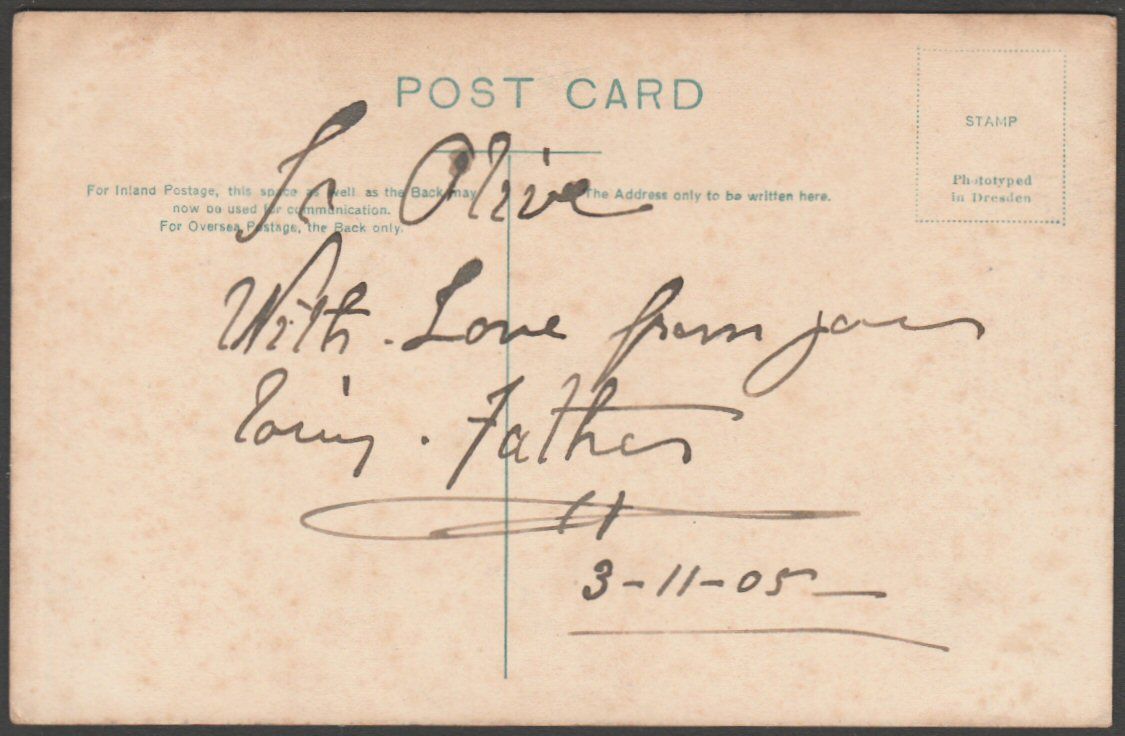 POST CARD
STAMP
Phototyped
in Dresden
For Inland Postage, this space as well as the Back may
now be used for communication.
For Oversea Postage, the Back only.
The Address only to be written here.
To Olive
With . Love from your
loving . Father
3-11-05